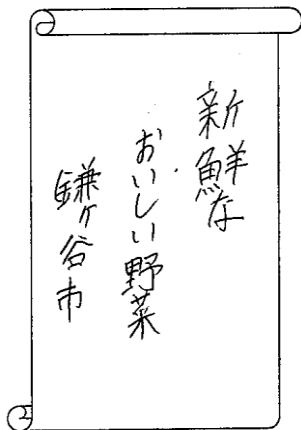 新鮮な
おいしい野菜
鎌ヶ谷市